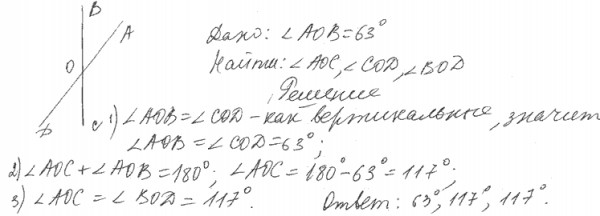 B
A
O
D
C
Дано: ∠AOB=63°
Найти: ∠AOC, ∠COD, ∠BOD
Решение
1) ∠AOB=∠COD - как вертикальные, значит
∠AOB = ∠COD=63°;
2) ∠AOC+∠AOB=180°; ∠AOC=180°-63°=117°;
3) ∠AOC = ∠BOD = 117°. Ответ: 63°, 117°, 117°.